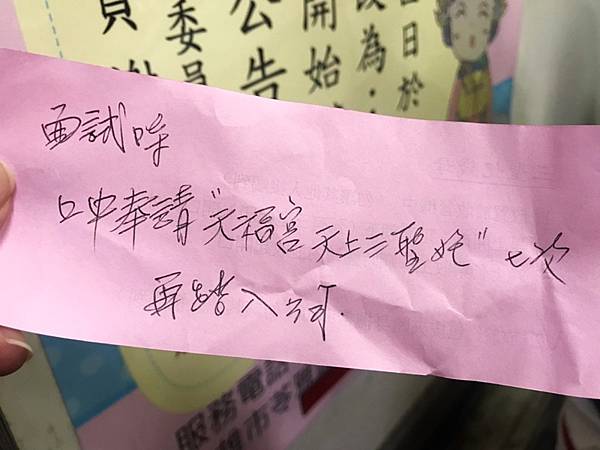 日於
為：
開始
公告
委員
面試時
口中奉請"天福宮 天上三聖母"七次
再踏入方可.
服務電話
雄市苓